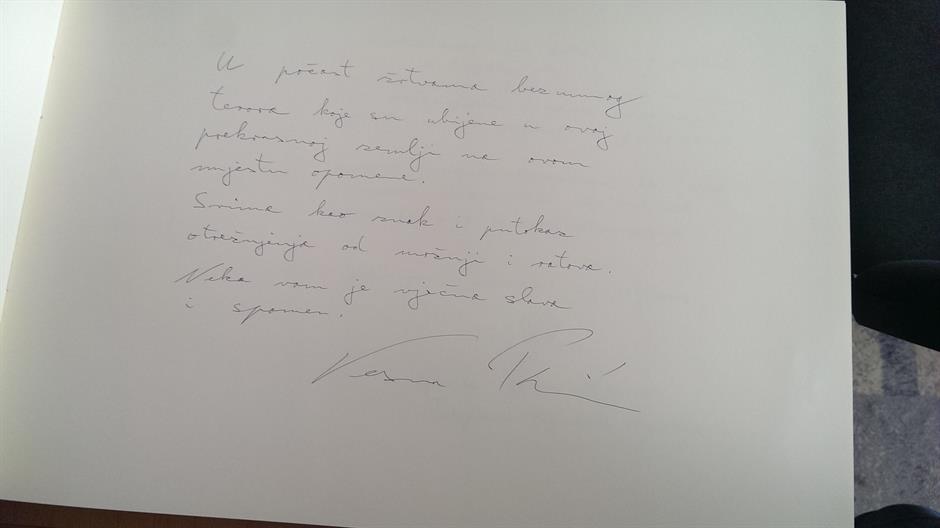 U počast žrtvama bezumnog
terora koje su ubijene u ovoj
prekrasnoj zemlji na ovom
mjestu opomene.
Svima kao znak i putokaz
otrežnjenja od mržnji i ratova.
Neka vam je vječna slava
i spomen.
Vesna